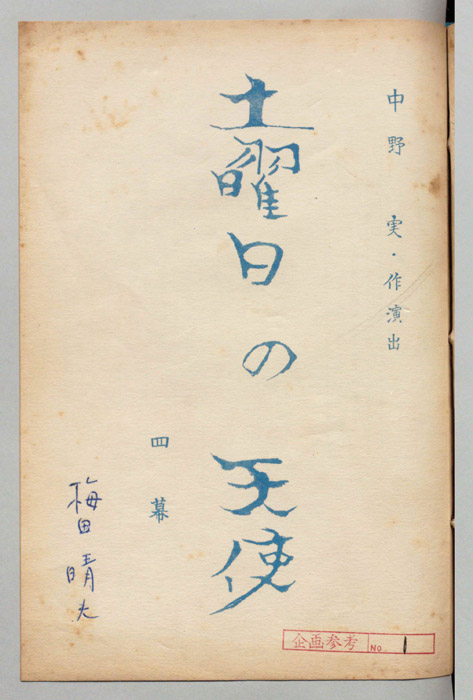 中野 実・作演出
土曜日の天使
四幕
梅田晴夫
企画参考 No. 1